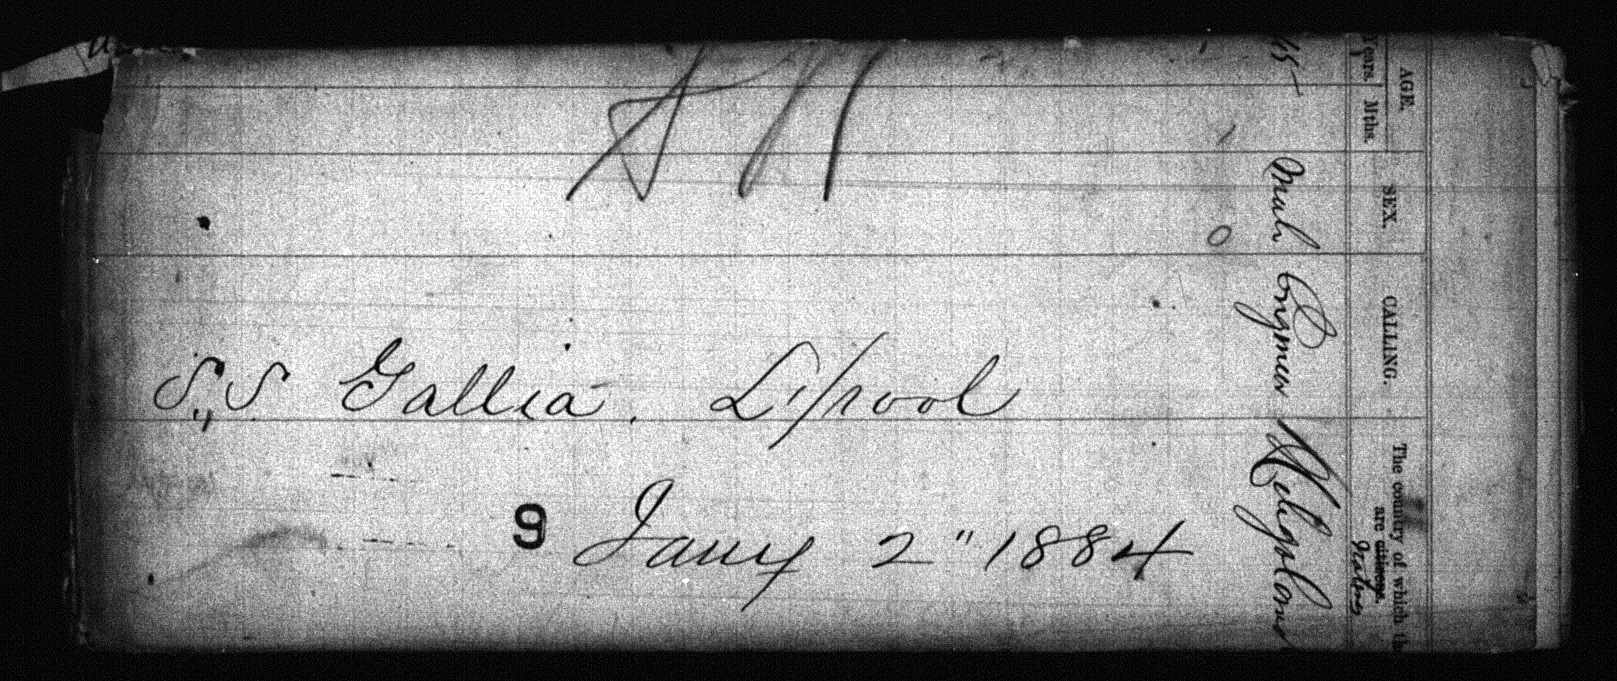 S,,S Gallia. L'/pool
9 Jany 2" 1884
AGE.
Years. Mths.
SEX.
CALLING.
The country of which th
are citizens.
Natives
45 Male Engineer Heligoland